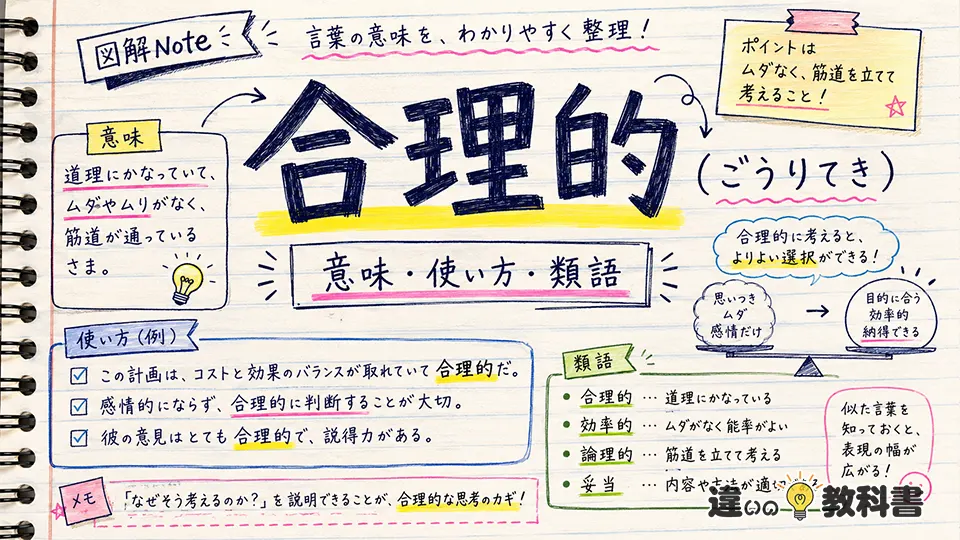 図解Note
言葉の意味を、わかりやすく整理！
ポイントは
ムダなく、筋道を立てて
考えること！
合理的
(ごうりてき)
意味
道理にかなっていて、
ムダやムリがなく、
筋道が通っている
さま。
意味・使い方・類語
合理的に考えると、
よりよい選択ができる！
思いつき
ムダ
感情だけ
→
目的に合う
効率的
納得できる
使い方(例)
この計画は、コストと効果のバランスが取れていて合理的だ。
感情的にならず、合理的に判断することが大切。
彼の意見はとても合理的で、説得力がある。
類語
・合理的 … 道理にかなっている
・効率的 … ムダがなく能率がよい
・論理的 … 筋道を立てて考える
・妥当 … 内容や
似た言葉を
知っておくと、
表現の幅が
広がる！
メモ
「なぜそう考えるのか?」を説明できることが、合理的な思考のカギ！
違いの教科書